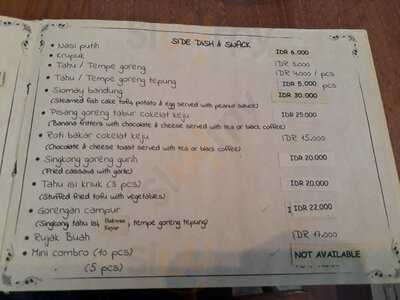 SIDE DISH & SNACK
Nasi putih IDR 6.000
Krupuk IDR 3.000
Tahu / Tempe goreng IDR 4.000 / pcs
Tahu / Tempe goreng tepung IDR 5.000 pcs
Siomay bandung IDR 30.000
(Steamed fish cake tofu, potato & egg served with peanut sauce)
Pisang goreng tabur cokelat keju IDR 25.000
(Banana fritters with chocolate & cheese served with tea or black coffee)
Roti bakar cokelat keju IDR 15.000
(Chocolate & cheese toast served with tea or black coffee)
Singkong goreng gurih IDR 20.000
(Fried cassava with garlic)
Tahu isi kriuk (3 pcs) IDR 20.000
(Stuffed fried tofu with vegetables)
Gorengan campur IDR 22.000
(Singkong, tahu isi, Bakwan Sayur, tempe goreng tepung)
Rujak Buah IDR 17.000
Mini combro (10 pcs) NOT AVAILABLE
(5 pcs)